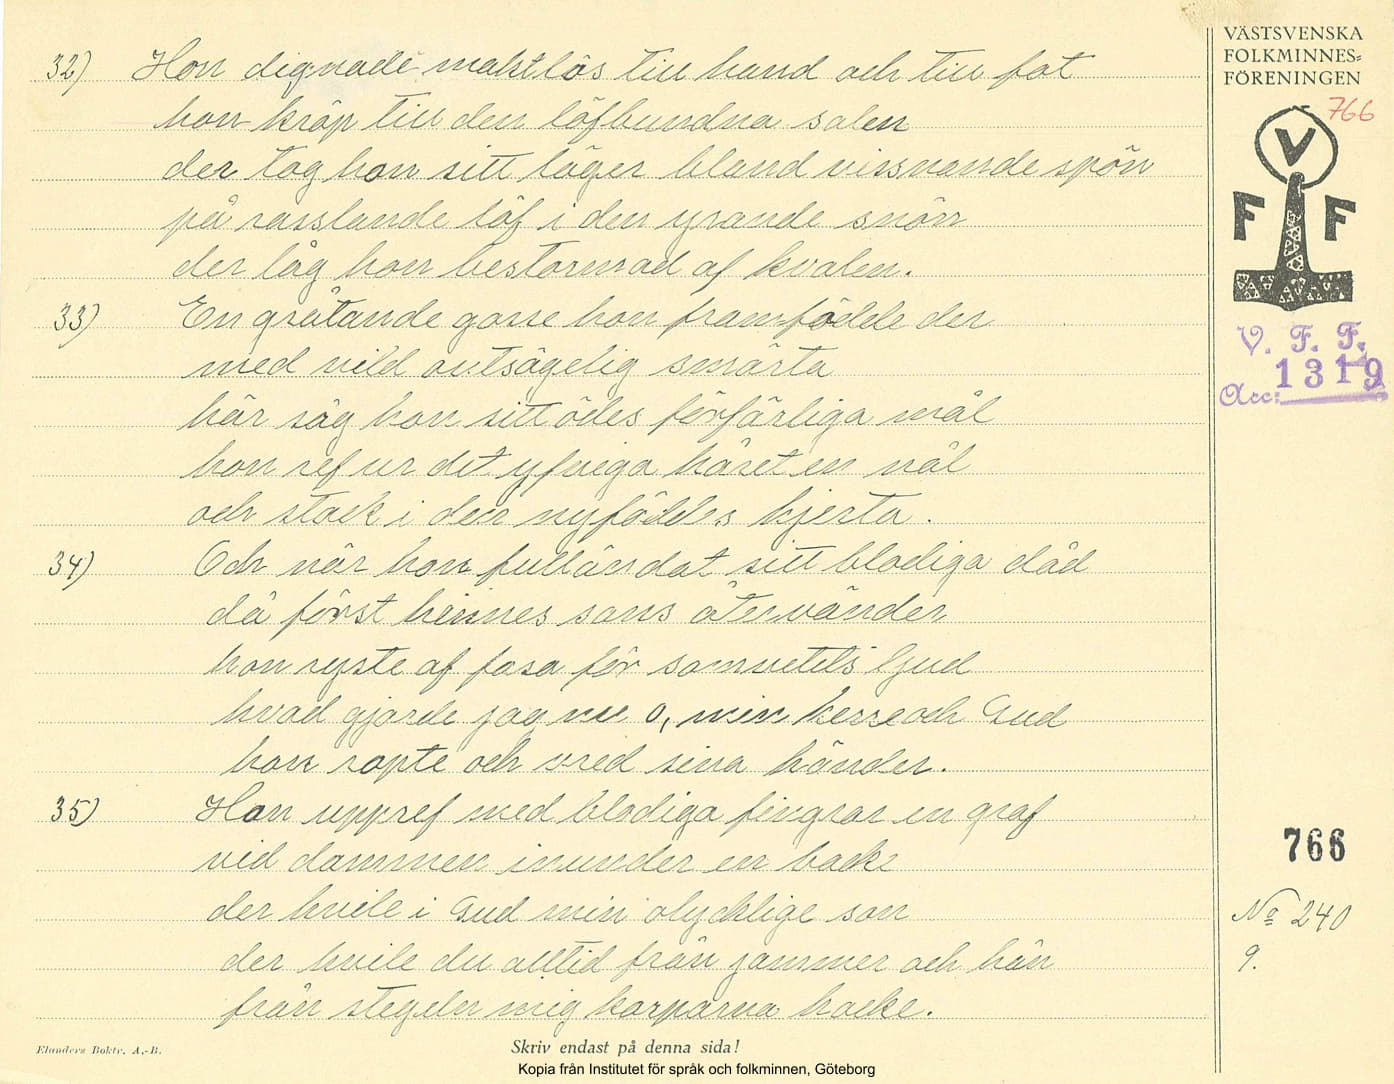 32) Hon dignade maktlös till hand och till fot
hon kröp till den löfbundna salen
der tog hon sitt läger bland vissnande spön
på rasslande löf i den yrande snön
der låg hon bestormad af kvalen.
33) En gråtande gosse hon framfödde der
med vild outsägelig smärta
här såg hon sitt ödes förfärliga mål
hon ref ur det yfviga håret en nål
och stack i den nyföddes hjerta.
34) Och när hon fulländat sitt blodiga dåd
då först hennes sans återvänder
hon ryste af fasa för samvetets ljud
hvad gjorde jag nu o, min herre och Gud
hon ropte och vred sina händer.
35) Hon uppref med blodiga fingrar en graf
vid dammen inunder en backe
der hvile i Gud min olycklige son
der hvile du alltid från jammer och hån
från stegeln mig korparna hacke.
VÄSTSVENSKA
FOLKMINNES-
FÖRENINGEN
766
V
F F
V. F. F.
Acc: 1319
766
No 240
9.
Elanders Boktr. A.-B.
Skriv endast på denna sida!
Kopia från Institutet för språk och folkminnen, Göteborg